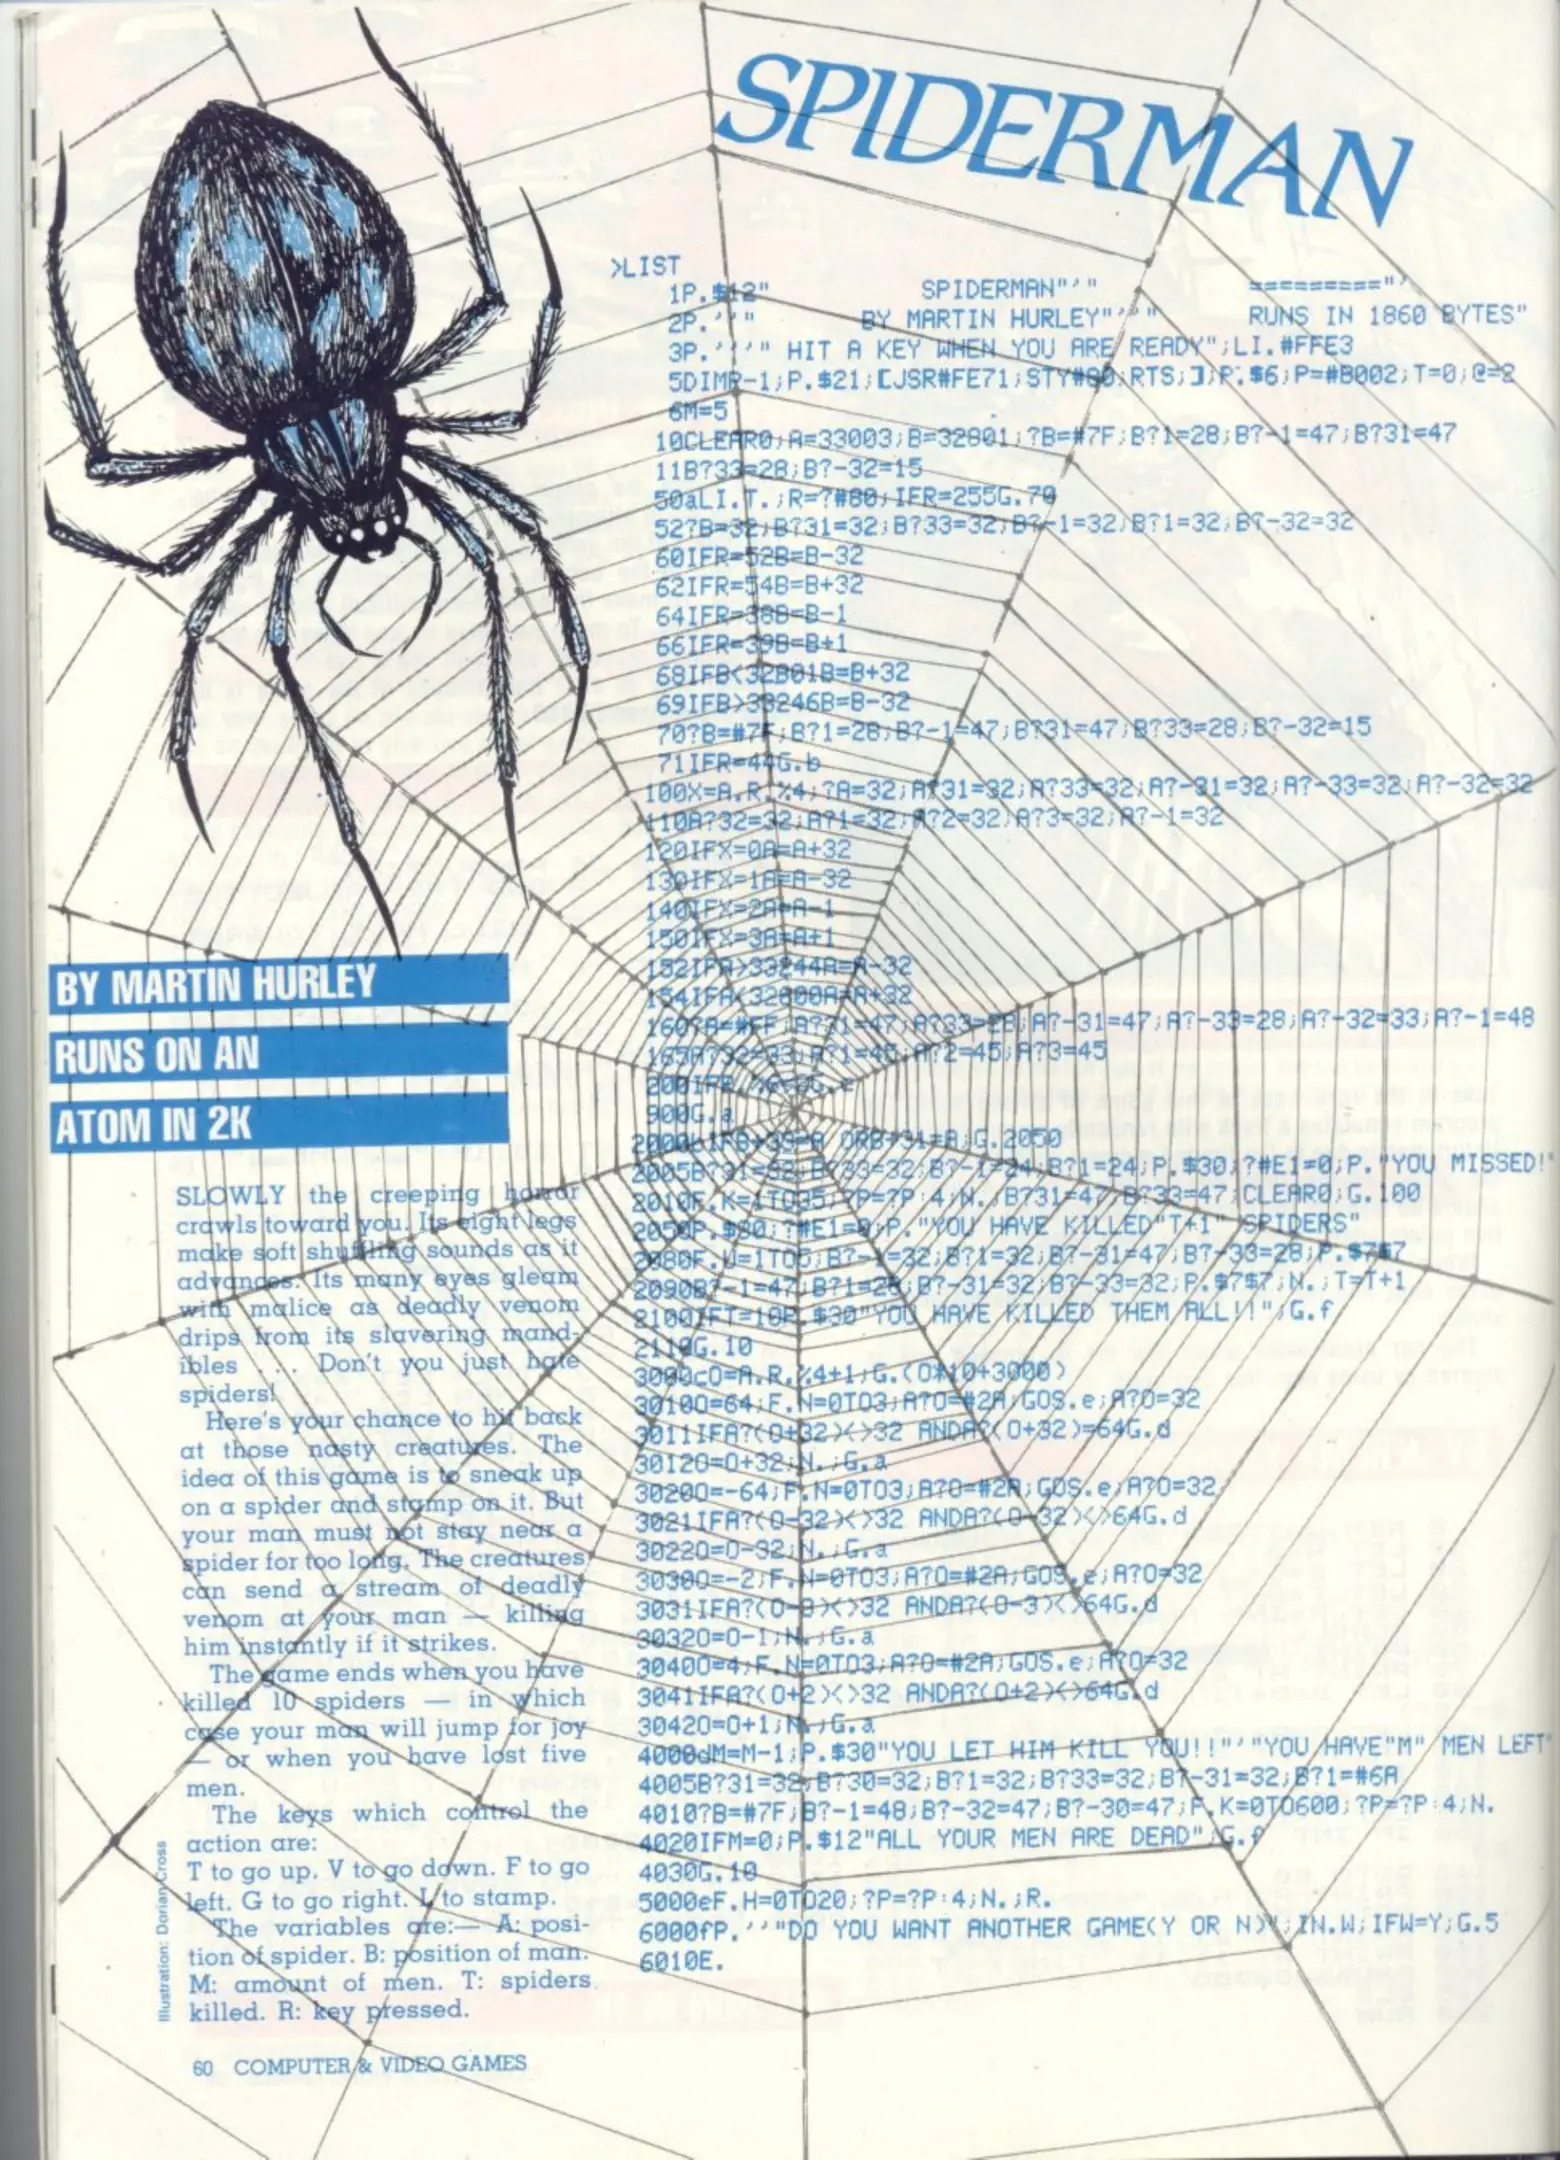 SPIDERMAN
>LIST
1P.$12" SPIDERMAN"'" ========="'
2P.''" BY MARTIN HURLEY"''" RUNS IN 1860 BYTES"
3P.'''" HIT A KEY WHEN YOU ARE READY";LI.#FFE3
5DIMR-1;P.$21;[JSR#FE71;STY#80;RTS;];P.$6;P=#B002;T=0;@=2
6M=5
10CLEAR0;A=33003;B=32801;?B=#7F;B?1=28;B?-1=47;B?31=47
11B?33=28;B?-32=15
50aLI.T.;R=?#80;IFR=255G.70
52?B=32;B?31=32;B?33=32;B?-1=32;B?1=32;B?-32=32
60IFR=52B=B-32
62IFR=54B=B+32
64IFR=38B=B-1
66IFR=39B=B+1
68IFB<32801B=B+32
69IFB>33246B=B-32
70?B=#7F;B?1=28;B?-1=47;B?31=47;B?33=28;B?-32=15
71IFR=44G.b
100X=A.R.%4;?A=32;A?31=32;A?33=32;A?-31=32;A?-33=32;A?-32=32
110A?32=32;A?1=32;A?2=32;A?3=32;A?-1=32
120IFX=0A=A+32
130IFX=1A=A-32
140IFX=2A=A-1
150IFX=3A=A+1
152IFA>33244A=A-32
154IFA<32800A=A+32
160?A=#FF;A?31=47;A?33=28;A?-31=47;A?-33=28;A?-32=33;A?-1=48
165A?32=33;A?1=45;A?2=45;A?3=45
900G.a
2000bIFB+33=A ORB+31=A;G.2050
2005B?31=32;B?33=32;B?-1=24;B?1=24;P.$30;?#E1=0;P."YOU MISSED!"
2010F.K=1TO35;?P=?P:4;N.;B?31=47;B?33=47;CLEAR0;G.100
2050P.$30;?#E1=0;P."YOU HAVE KILLED"T+1" SPIDERS"
2080F.U=1TO5;B?-1=32;B?1=32;B?-31=47;B?-33=28;P.$7$7
2090B?-1=47;B?1=28;B?-31=32;B?-33=32;P.$7$7;N.;T=T+1
2100IFT=10P.$30"YOU HAVE KILLED THEM ALL!!";G.f
2110G.10
3000cO=A.R.%4+1;G.(O*10+3000)
3010O=64;F.N=0TO3;A?O=#2A;GOS.e;A?O=32
3011IFA?(O+32)<>32 ANDA?(O+32)=64G.d
3012O=O+32;N.;G.a
3020O=-64;F.N=0TO3;A?O=#2A;GOS.e;A?O=32
3021IFA?(O-32)<>32 ANDA?(O-32)<>64G.d
3022O=O-32;N.;G.a
3030O=-2;F.N=0TO3;A?O=#2A;GOS.e;A?O=32
3031IFA?(O-3)<>32 ANDA?(O-3)<>64G.d
3032O=O-1;N.;G.a
3040O=4;F.N=0TO3;A?O=#2A;GOS.e;A?O=32
3041IFA?(O+2)<>32 ANDA?(O+2)<>64G.d
3042O=O+1;N.;G.a
4000dM=M-1;P.$30"YOU LET HIM KILL YOU!!"'"YOU HAVE"M" MEN LEFT"
4005B?31=32;B?30=32;B?1=32;B?33=32;B?-31=32;B?1=#6A
4010?B=#7F;B?-1=48;B?-32=47;B?-30=47;F.K=0TO600;?P=?P:4;N.
4020IFM=0;P.$12"ALL YOUR MEN ARE DEAD";G.f
4030G.10
5000eF.H=0TO20;?P=?P:4;N.;R.
6000fP.''"DO YOU WANT ANOTHER GAME(Y OR N)";IN.W;IFW=Y;G.5
6010E.
BY MARTIN HURLEY
RUNS ON AN
ATOM IN 2K
SLOWLY the creeping horror
crawls toward you. Its eight legs
make soft shuffling sounds as it
advances. Its many eyes gleam
with malice as deadly venom
drips from its slavering mand-
ibles . . . Don't you just hate
spiders!
Here's your chance to hit back
at those nasty creatures. The
idea of this game is to sneak up
on a spider and stamp on it. But
your man must not stay near a
spider for too long. The creatures
can send a stream of deadly
venom at your man — killing
him instantly if it strikes.
The game ends when you have
killed 10 spiders — in which
case your man will jump for joy
— or when you have lost five
men.
The keys which control the
action are:
T to go up. V to go down. F to go
left. G to go right. L to stamp.
The variables are:— A: posi-
tion of spider. B: position of man.
M: amount of men. T: spiders
killed. R: key pressed.
Illustration: Dorian Cross
60 COMPUTER & VIDEO GAMES